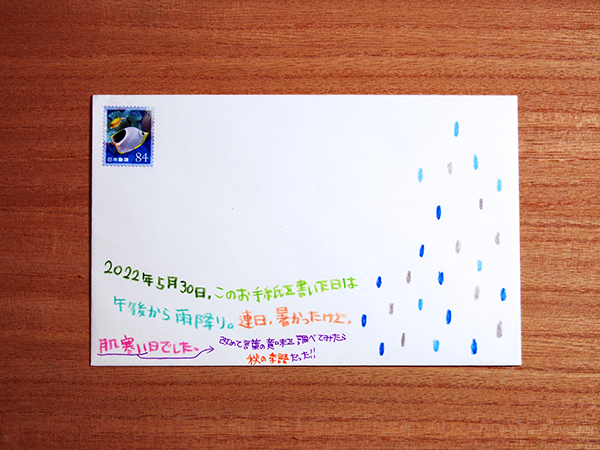 日本郵便 84
2022年5月30日、このお手紙を書いた日は
午後から雨降り。連日、暑かったけど。
肌寒い日でした。 改めて言葉の意味を調べてみたら
秋の季語だった!!